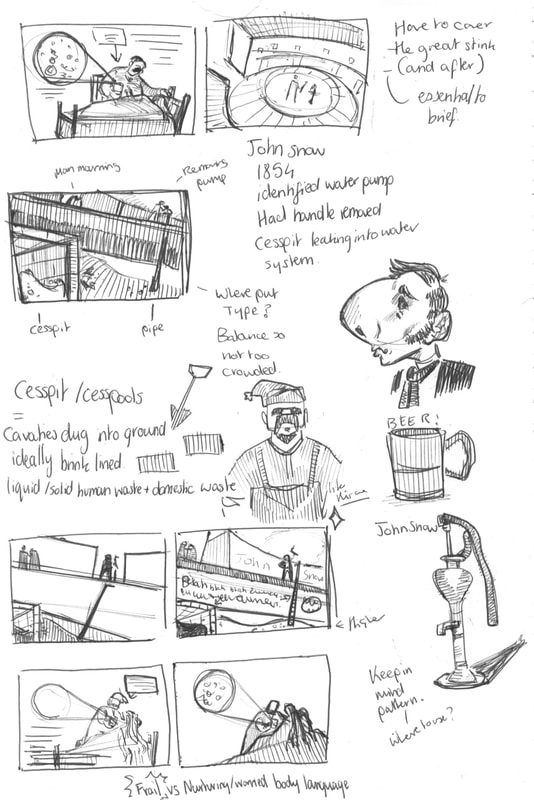 Have to cover
the great stink
- (and after)
essential to
brief.
John Snow
1854
identified water pump
Had handle removed
Cesspit leaking into water
system.
Man mourning
Removes
pump
cesspit
pipe
Where put
Type?
Balance so
not too
crowded.
Cesspit/cesspools
=
Cavaties dug into ground
ideally brink lined.
liquid/solid human waste + domestic waste
BEER!
John Snow
John Snow
Blah blah blah
Higher
Keep in
mind
pattern.
where to use?
{Frail} vs Nurturing/worried body language